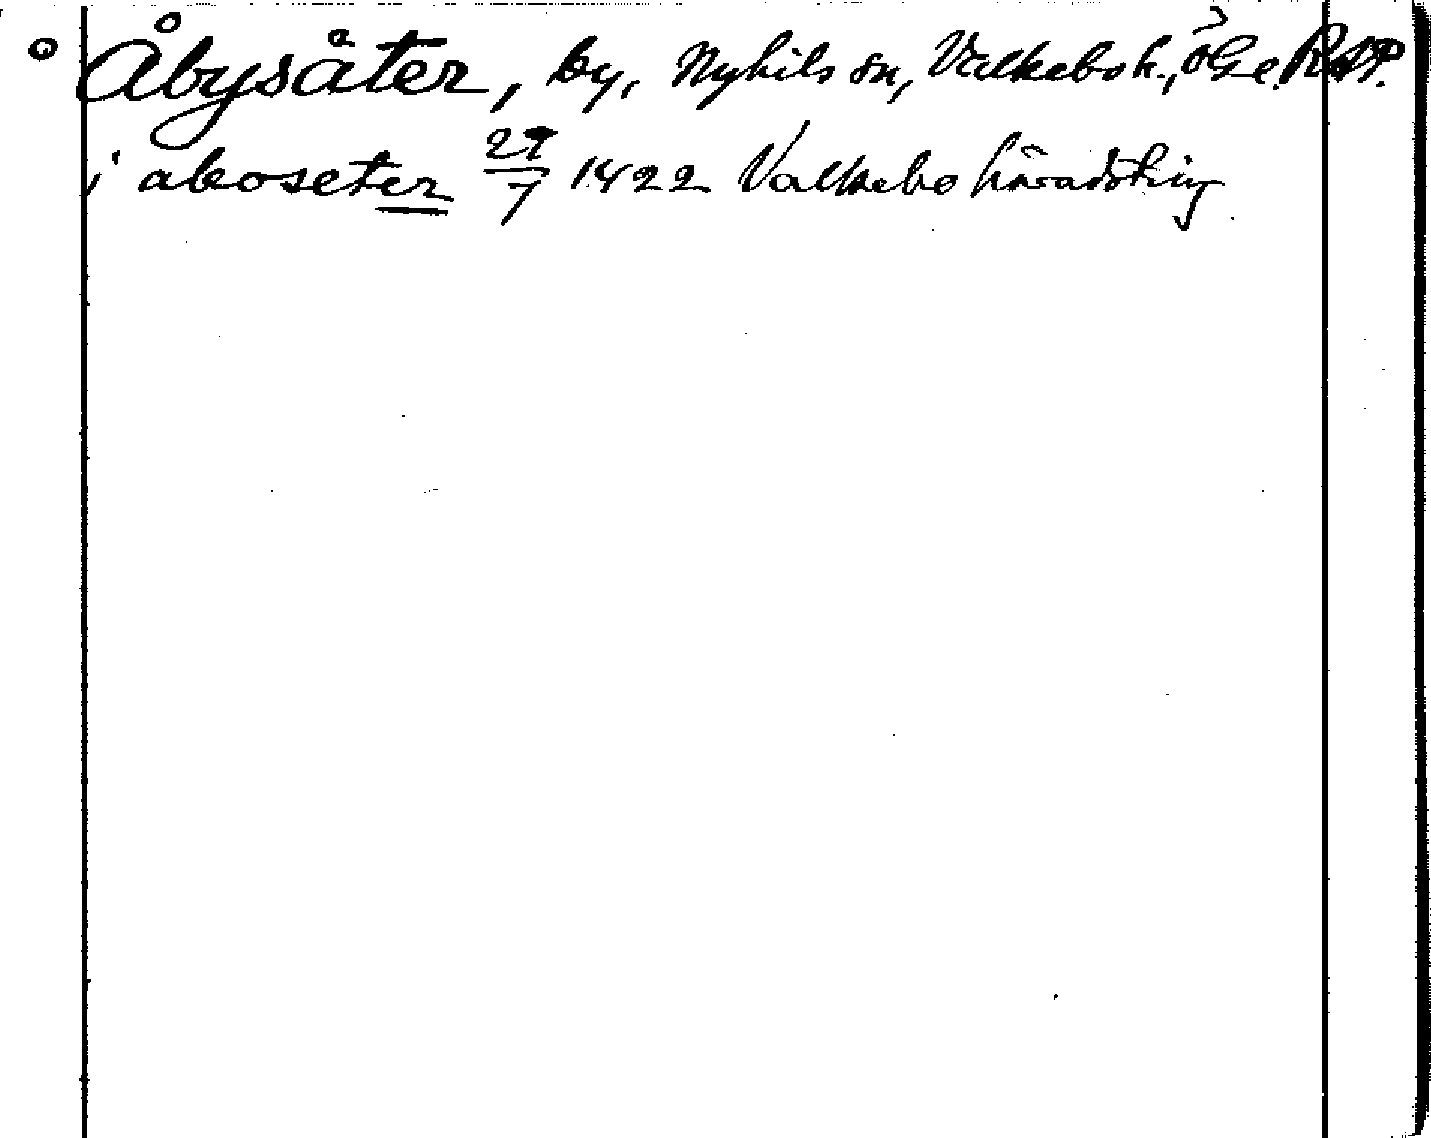 ° Åbysäter, by, Nykils sn, Valkebo h., ÖGe. RAP.
i aboseter 27/7 1422 Valkebo häradsting